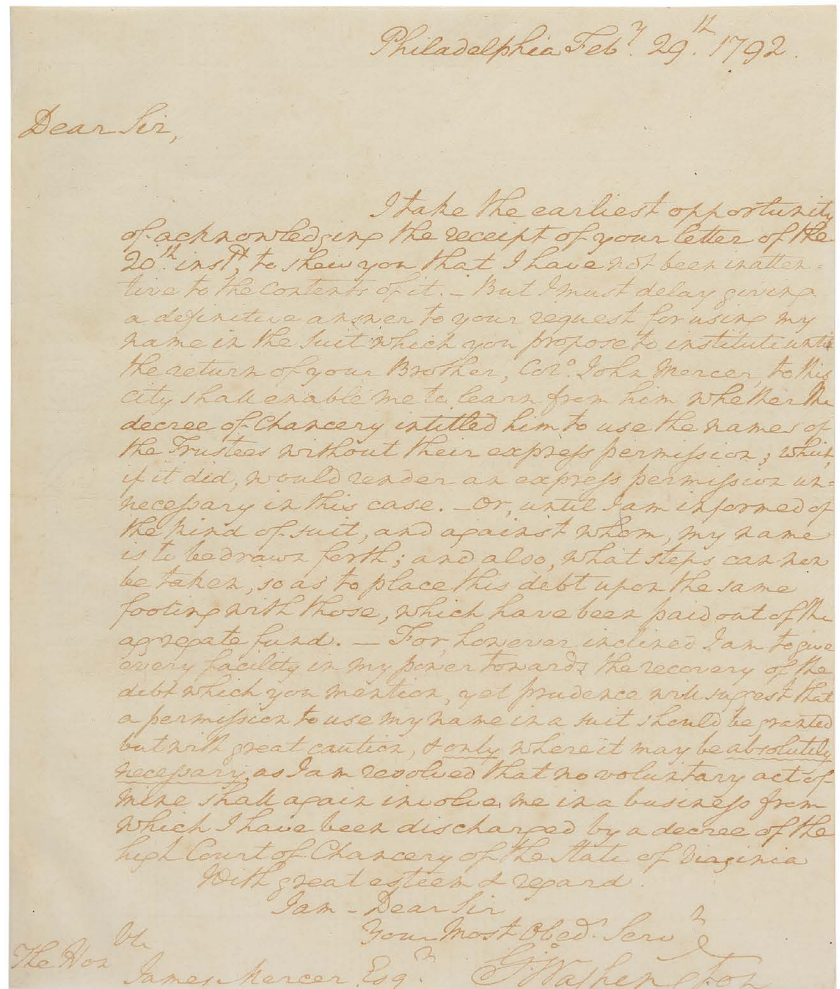 Philadelphia Feby. 29th. 1792.
Dear Sir,
I take the earliest opportunity
of acknowledging the receipt of your letter of the
20th. instt, to shew you that I have not been inatten-
tive to the contents of it. — But I must delay giving
a definitive answer to your request for using my
name in the suit which you propose to institute until
the return of your Brother, Colo. John Mercer, to this
city shall enable me to learn from him whether the
decree of Chancery intitled him to use the names of
the Trustees without their express permission; which,
if it did, would render an express permission un-
necessary in this case. — Or, until I am informed of
the kind of suit, and against whom, my name
is to be drawn forth; and also, what steps can now
be taken, so as to place this debt upon the same
footing with those, which have been paid out of the
aggregate fund. — For, however inclined I am to give
every facility in my power towards the recovery of the
debt which you mention, yet prudence will sugest that
a permission to use my name in a suit should be granted
but with great caution, & only where it may be absolutely
necessary, as I am resolved that no voluntary act of
mine shall again involve me in a business from
which I have been discharged by a decree of the
high Court of Chancery of the State of Virginia
With great esteem & regard
I am - Dear Sir
Your Most Obedt. Servt
The Honble
James Mercer Esqr. Go: Washington